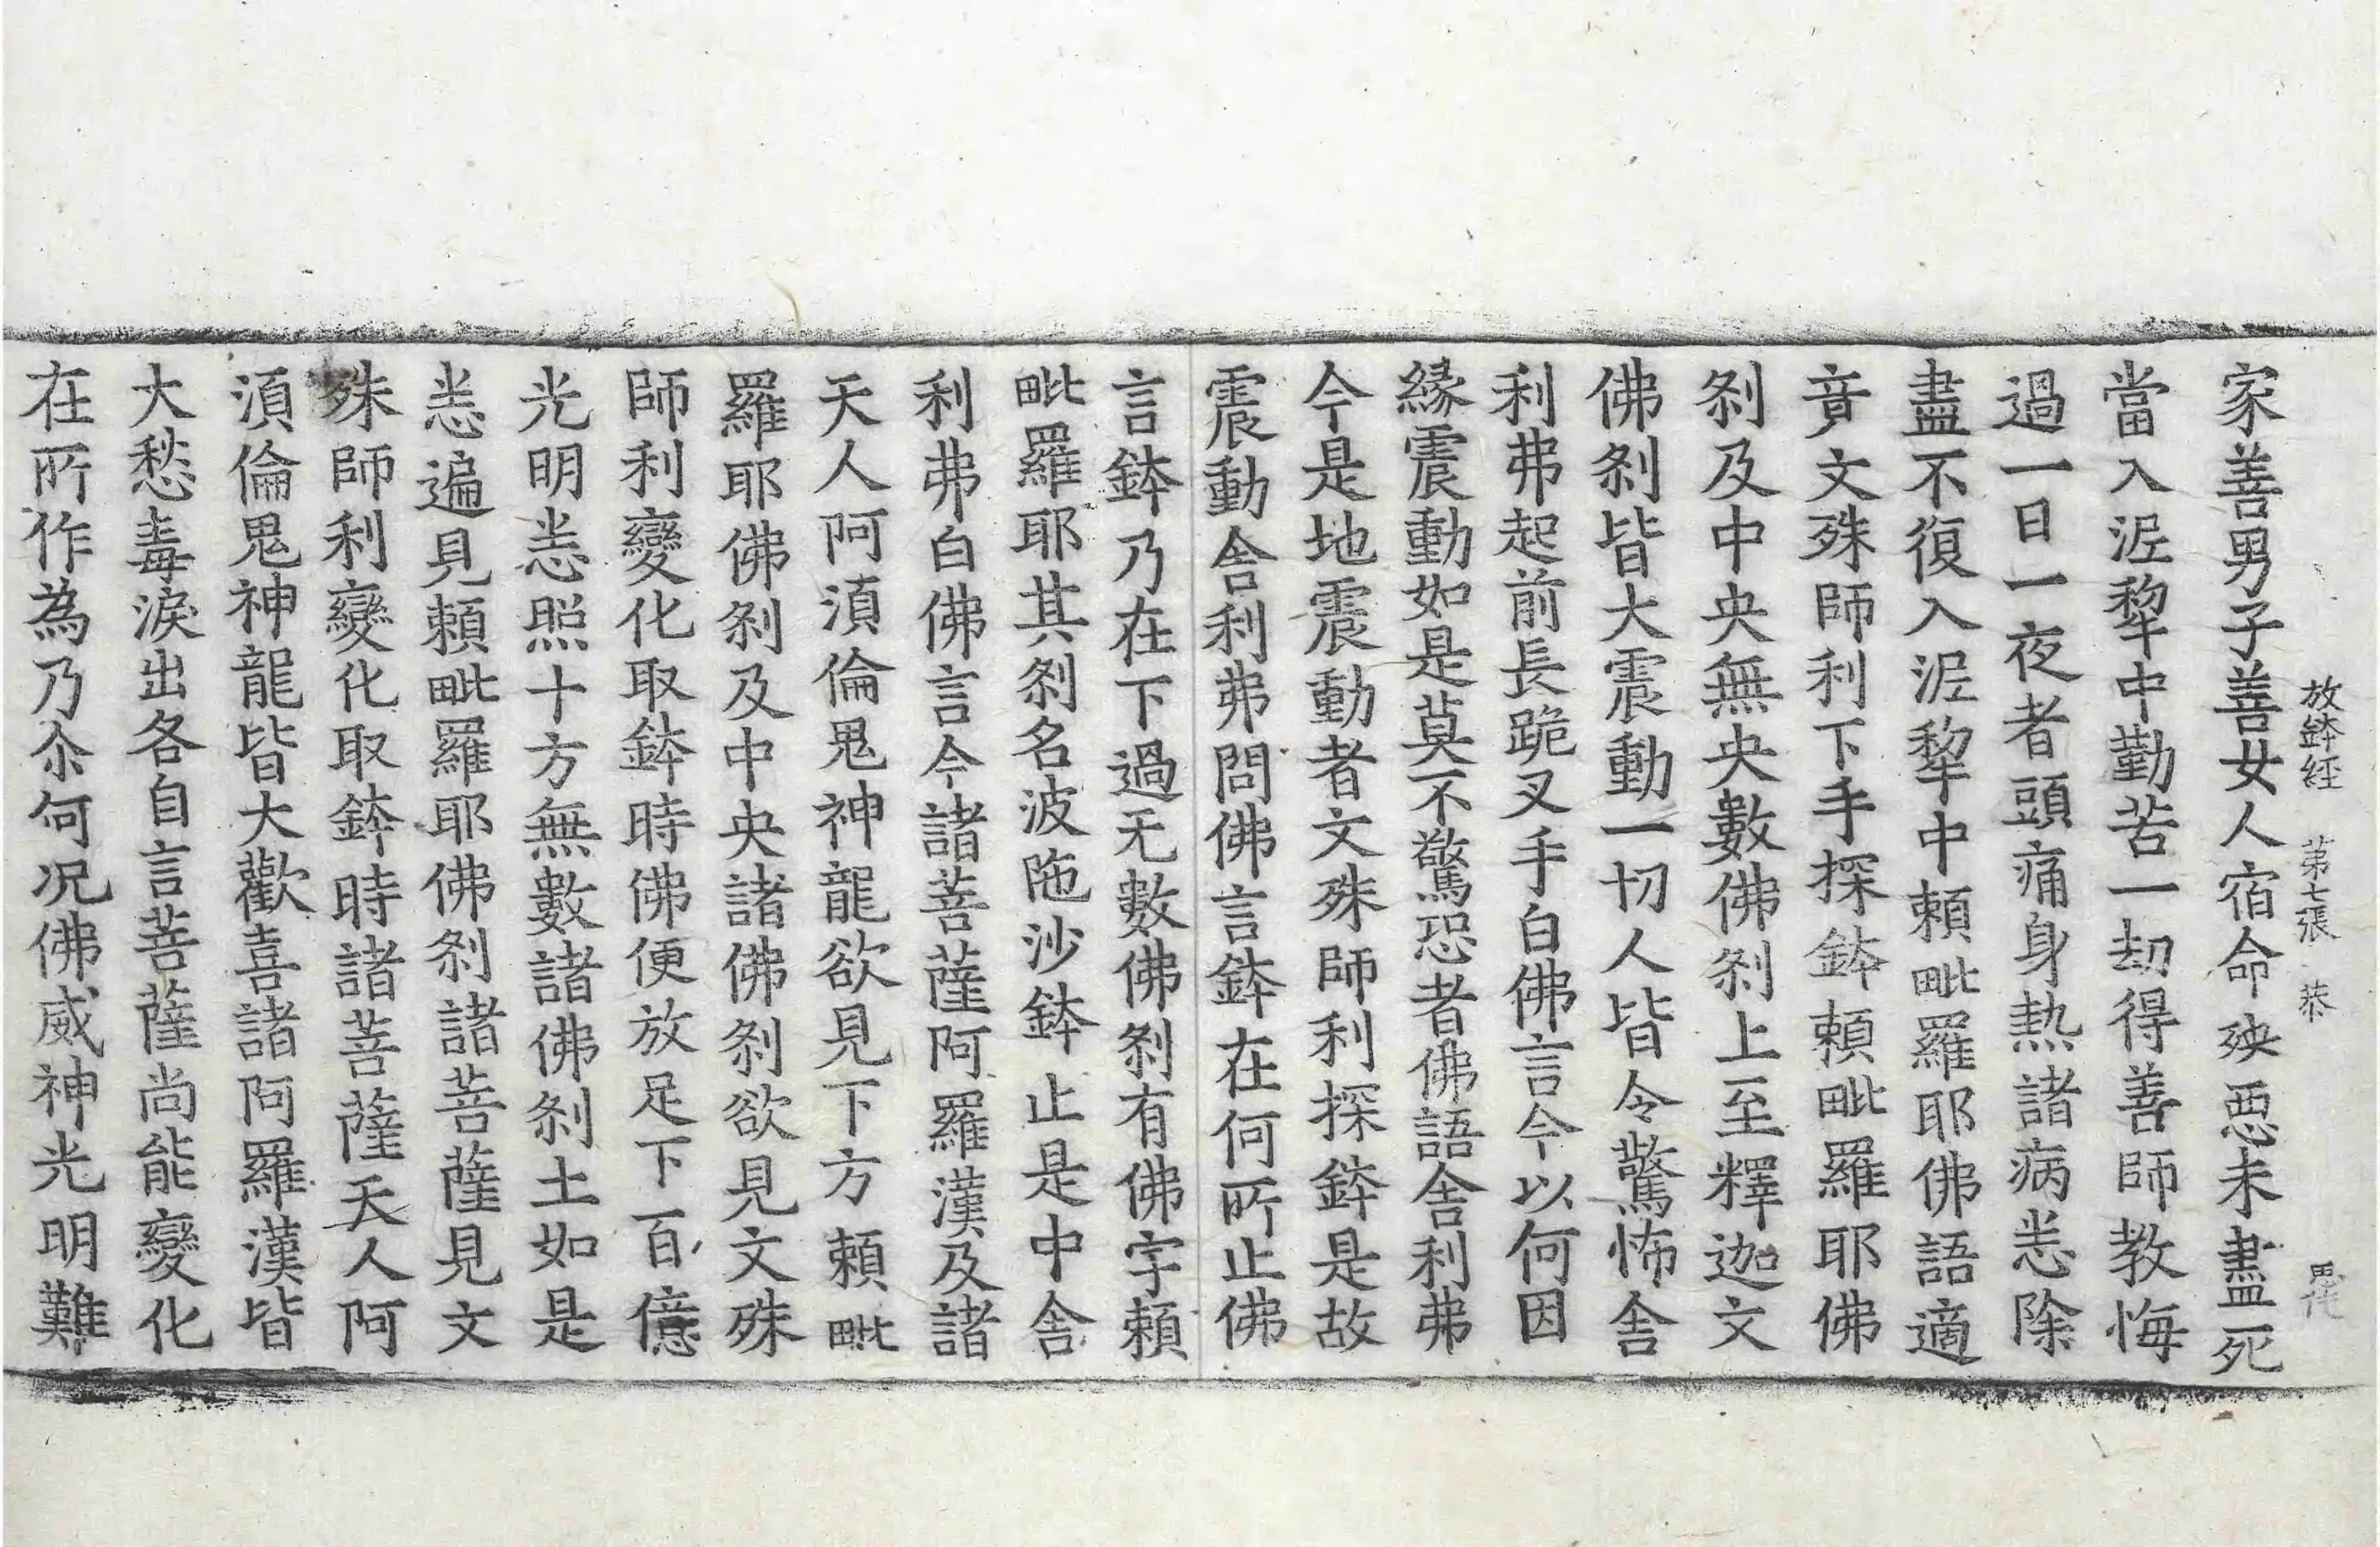 放鉢経 第七張 恭
家善男子善女人宿命殃惡未盡死
當入泥犁中勤苦一劫得善師教悔
過一日一夜者頭痛身熱諸病悉除
盡不復入泥犁中賴毗羅耶佛語適
竟文殊師利下手探鉢賴毗羅耶佛
剎及中央無央數佛剎上至釋迦文
佛剎皆大震動一切人皆令驚怖舍
利弗起前長跪叉手白佛言今以何因
緣震動如是莫不驚恐者佛語舍利弗
今是地震動者文殊師利探鉢是故
震動舍利弗問佛言鉢在何所止佛
言鉢乃在下過无數佛剎有佛字賴
毗羅耶其剎名波陁沙鉢止是中舍
利弗白佛言今諸菩薩阿羅漢及諸
天人阿須倫鬼神龍欲見下方賴毗
羅耶佛剎及中央諸佛剎欲見文殊
師利變化取鉢時佛便放足下百億
光明悉照十方無數諸佛剎土如是
悉遍見賴毗羅耶佛剎諸菩薩見文
殊師利變化取鉢時諸菩薩天人阿
須倫鬼神龍皆大歡喜諸阿羅漢皆
大愁毒淚出各自言菩薩尚能變化
在所作為乃尒何况佛威神光明難